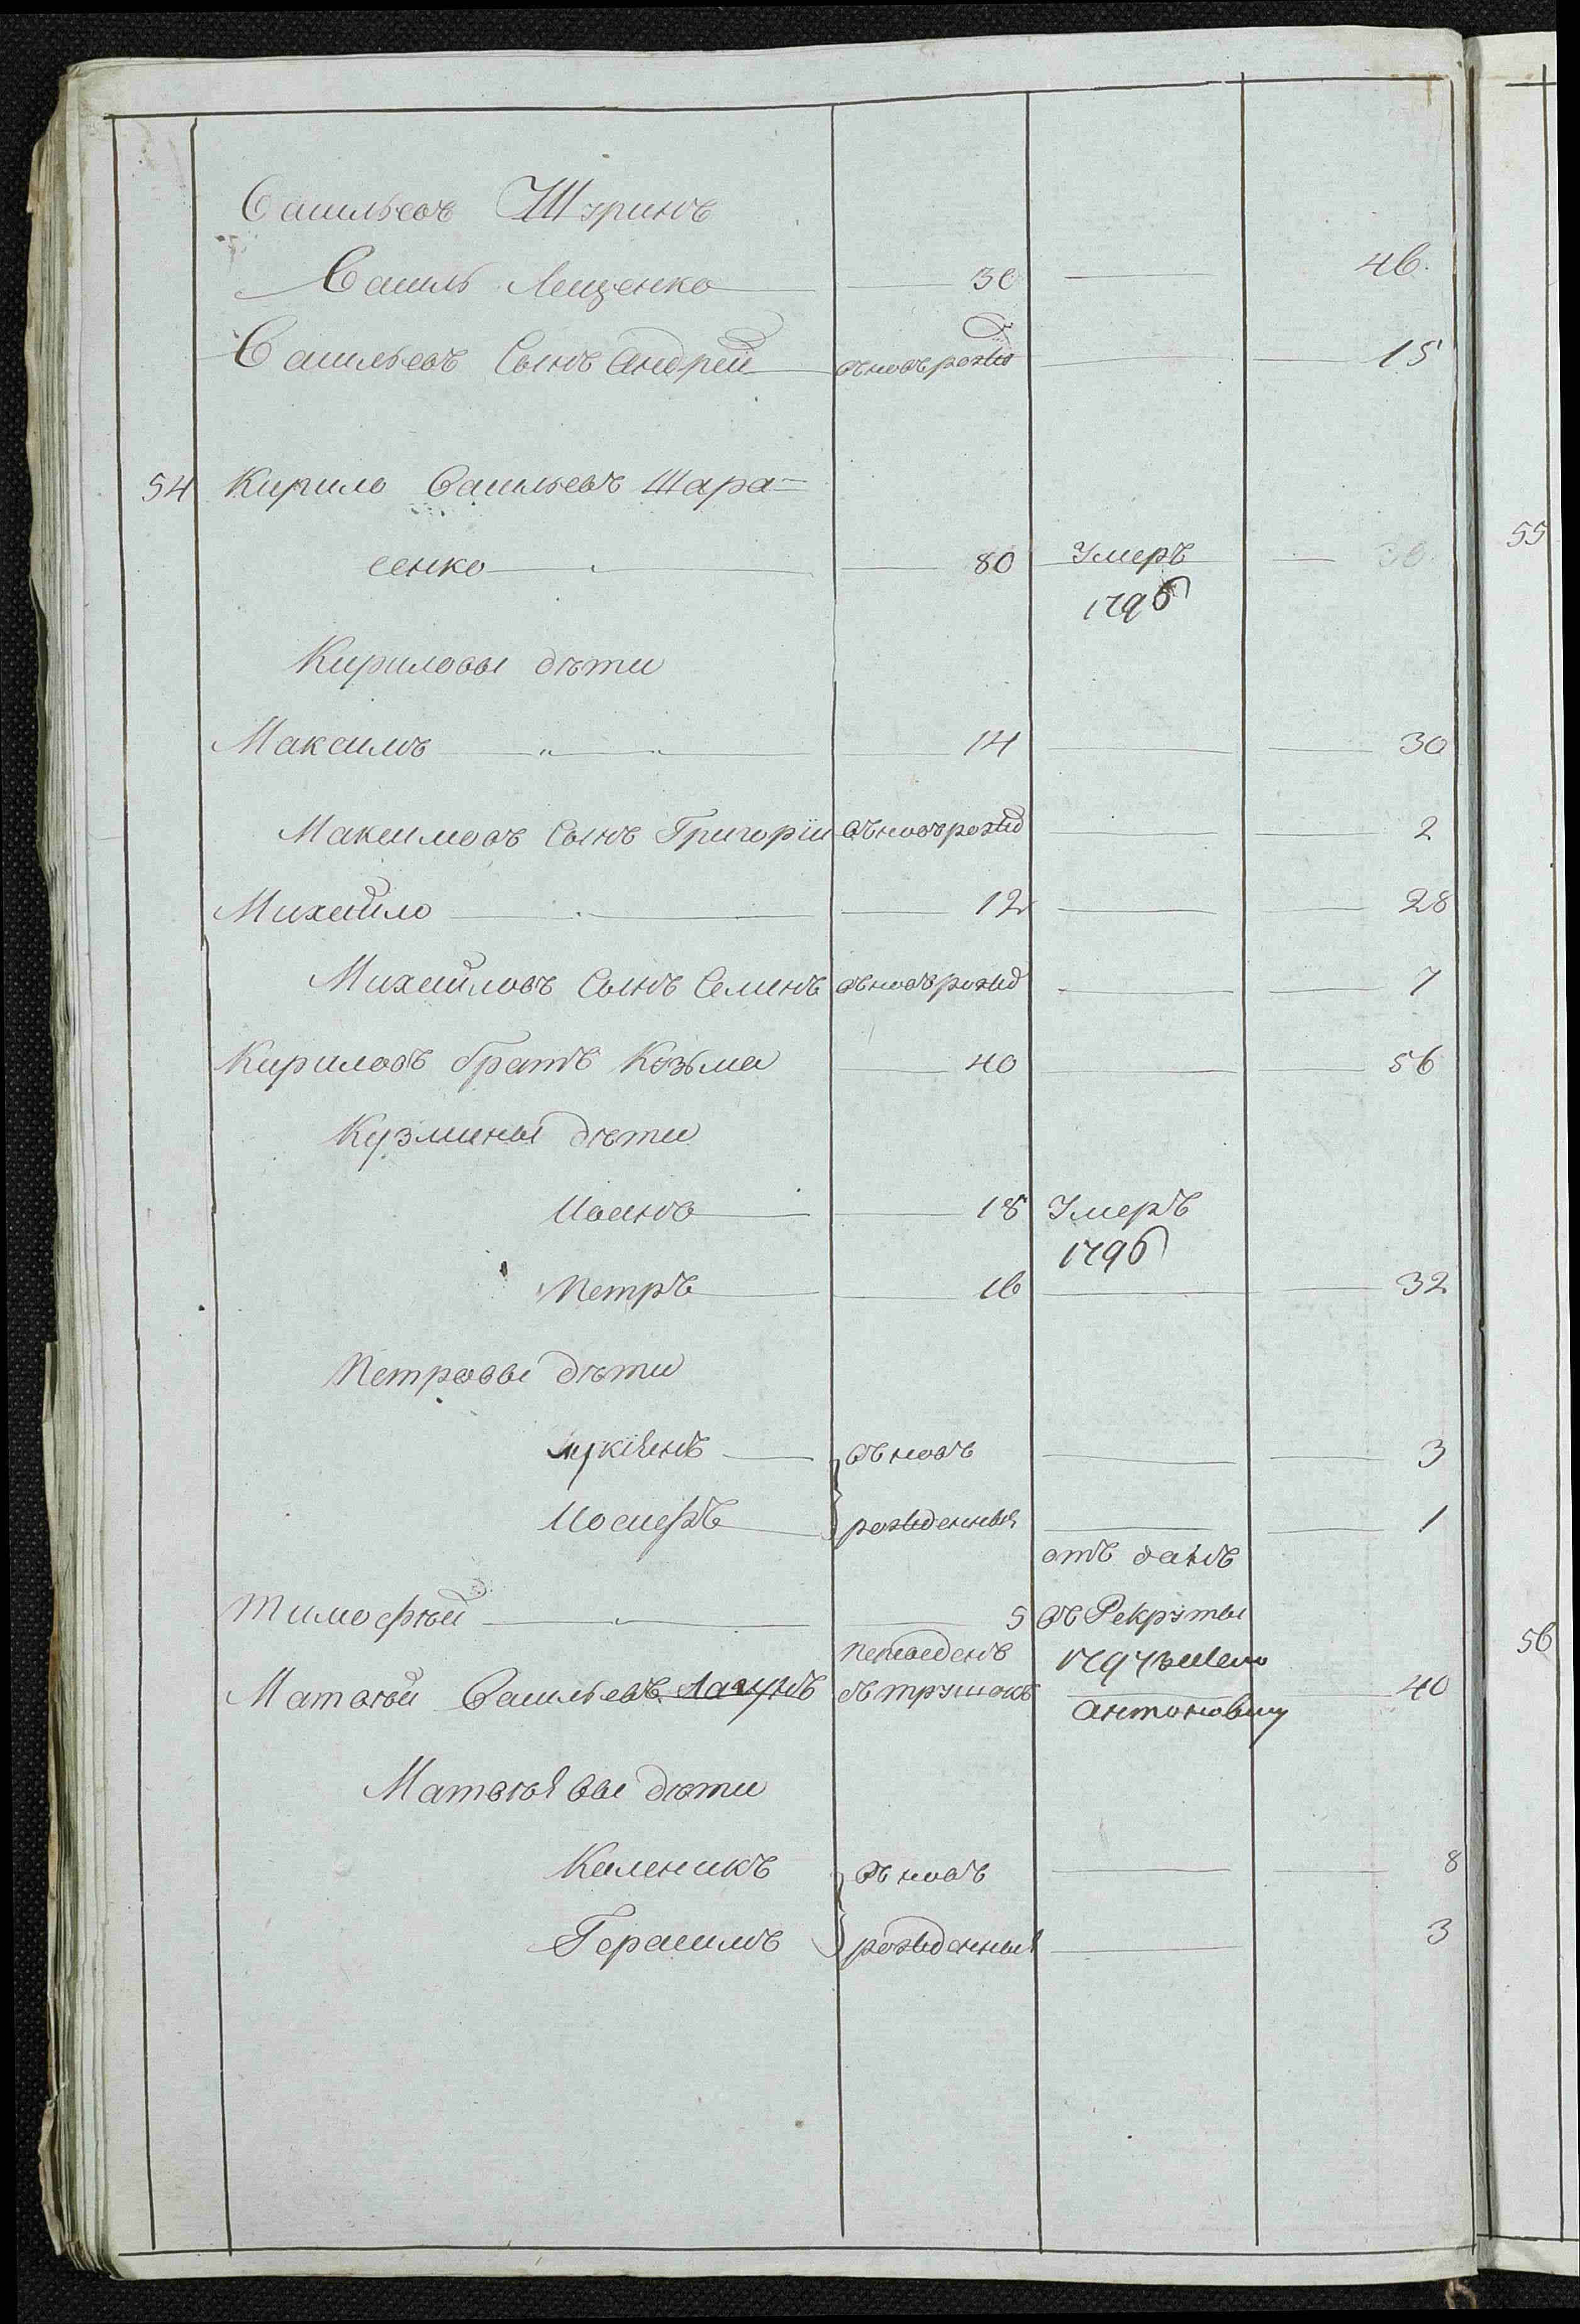 Васильевъ Шуринъ
Василь Лещенко 30 46.
Васильевъ Сынъ Андрей вновь рожд 15
54 Кирило Васильевъ Шара=
сенко 80 Умеръ 30
1796
55
Кириловы дѣти
Максимъ 14 30
Максимовъ Сынъ Григорій вновь рожд 2
Михайло 12 28
Михайловъ Сынъ Семенъ вновь рожд 7
Кириловъ братъ Козьма 40 56
Кузмины дѣти
Иванъ 18 Умеръ
1796
Петръ 16 32
Петровы дѣти
Лукіянъ вновь 3
Иосифъ рожденныя 1
отъ данъ
Тимофѣй 5 въ Рекруты
переведенъ 1797
56
Матвѣй Васильевъ Лагунъ 40
Антоновичу
Матвѣевы дѣти
Каленикъ вновь 8
Герасимъ рожденныя 3